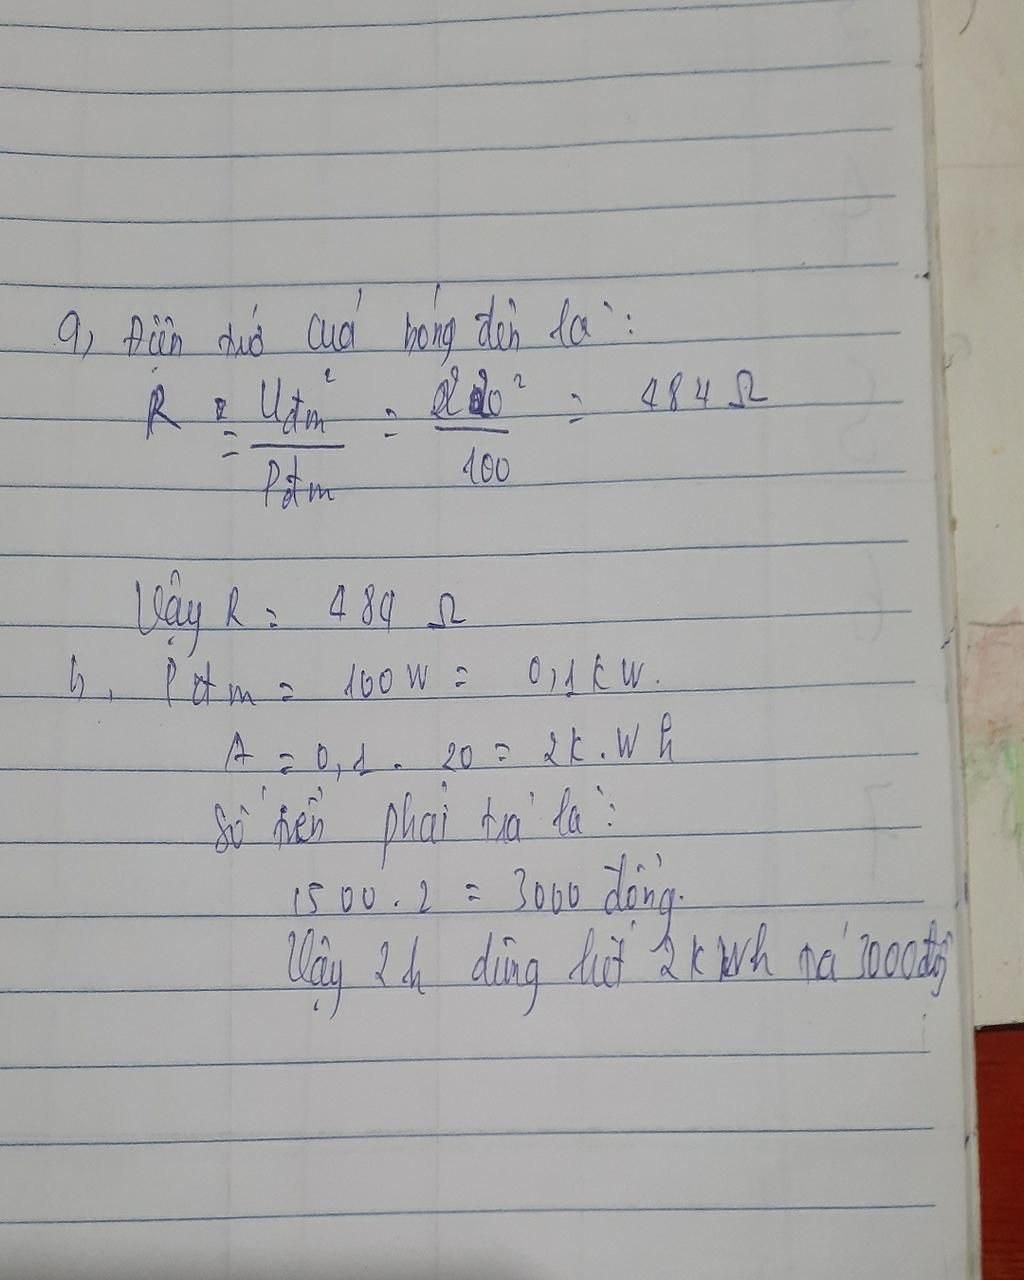 a, Điện trở của bóng đèn là:
R = Uđm² / Pđm = 220² / 100 = 484 Ω
Vậy R = 484 Ω
b, Pđm = 100W = 0,1kW.
A = 0,1 . 20 = 2k.Wh
Số tiền phải trả là:
1500.2 = 3000 đồng.
Vậy 2h dùng hết 2kWh trả 3000đồng